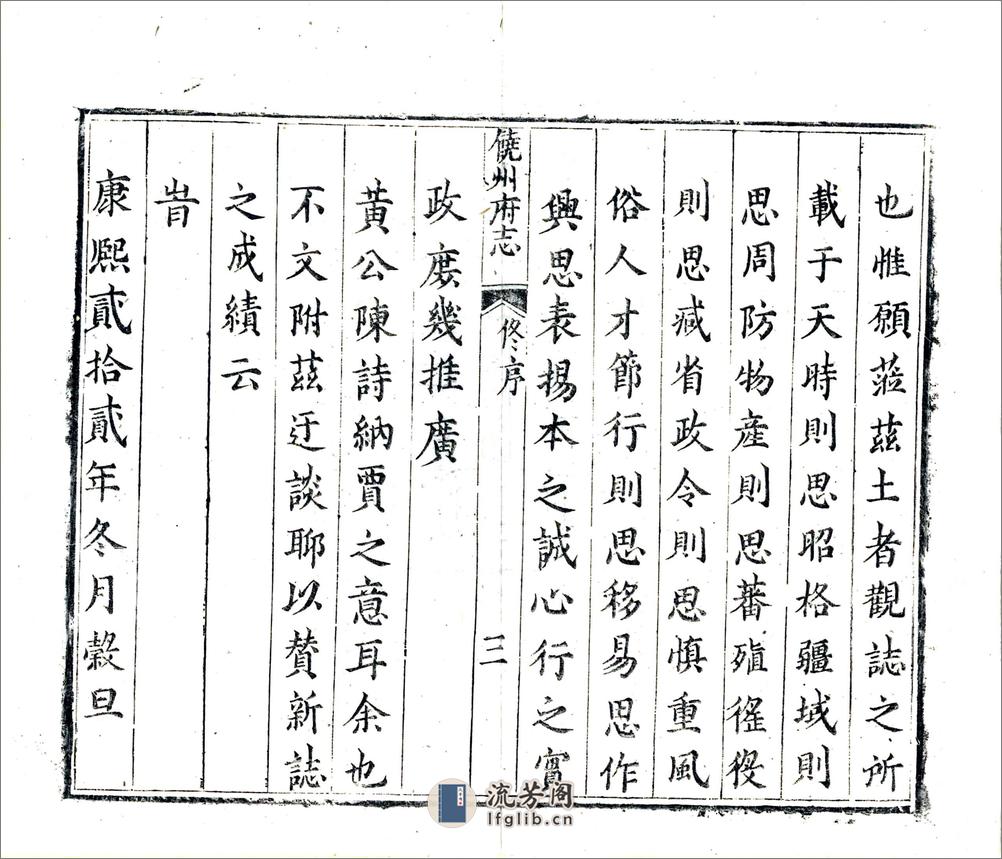 也惟願蒞茲土者觀誌之所
載于天時則思昭格疆域則
思周防物產則思蕃殖徭役
則思減省政令則思慎重風
俗人才節行則思移易思作
興思表揚本之誠心行之實
饒州府志 修序 三
政庶幾推廣
黃公陳詩納賈之意耳余也
不文附茲迂談聊以贊新誌
之成績云
旹
康熙貳拾貳年冬月穀旦
流芳阁
lfglib.cn